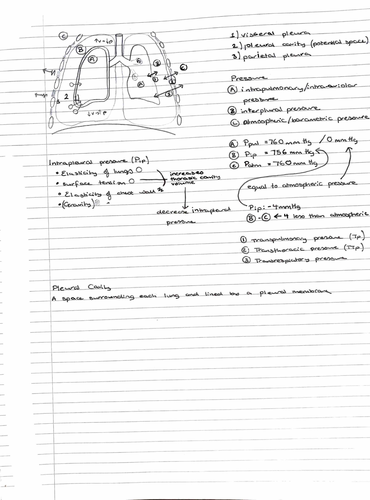 1) visceral pleura
2) pleural cavity (potential space)
3) parietal pleura
Pressure
A intrapulmonary/intraalveolar
pressure
B interplural pressure
C atmospheric/barometric pressure
A Ppul = 760 mm Hg / 0 mm Hg
B Pip = 756 mm Hg
C Patm = 760 mm Hg
equal to atmospheric pressure
Pip: -4mmHg
B - C ← 4 less than atmospheric
1 Transpulmonary pressure (Tp)
2 Transthoracic pressure (TTp)
3 Transrespiratory pressure
Intrapleural pressure (Pip)
• Elasticity of lungs
• Surface tension
• Elasticity of chest wall
• (Gravity)
increased
thoracic cavity
volume
decrease intrapleural
pressure
Pleural Cavity
A space surrounding each lung and lined by a pleural membrane